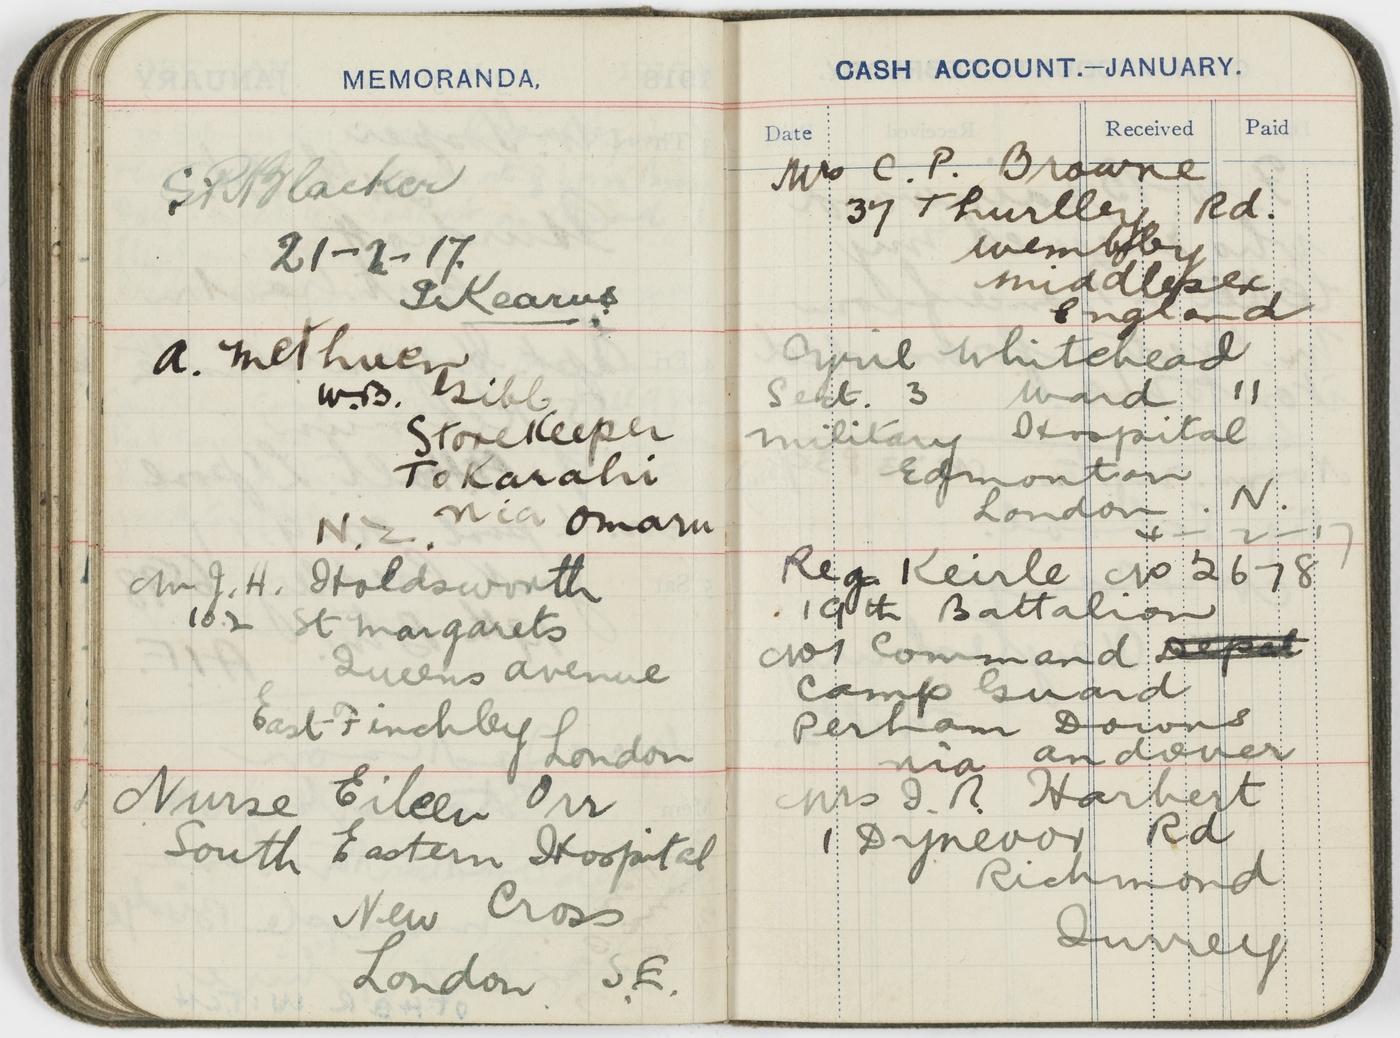 MEMORANDA,
Blacker
21-2-17.
Kearus
A. Methuen
W.B. Gibb
StoreKeeper
ToKarahi
via Omaru
N.Z.
Mr J. H. Holdsworth
102 St Margarets
Queens avenue
East Finchley
London
Nurse Eileen Orr
South Eastern Hospital
New Cross
London S.E.
CASH ACCOUNT.—JANUARY.
Date Received Paid
Mrs C. P. Browne
37 Thurlley Rd.
Wembley
Middlesex
England
Cyril Whitehead
Sect. 3 Ward 11
Military Hospital
Edmonton
London. N.
4-2-17
Reg. Keirle No 2678
19th Battalion
No 1 Command Depot
Camp Guard
Perham Downs
via andover
Mrs J. R. Harbert
1 Dynevor Rd
Richmond
Surrey